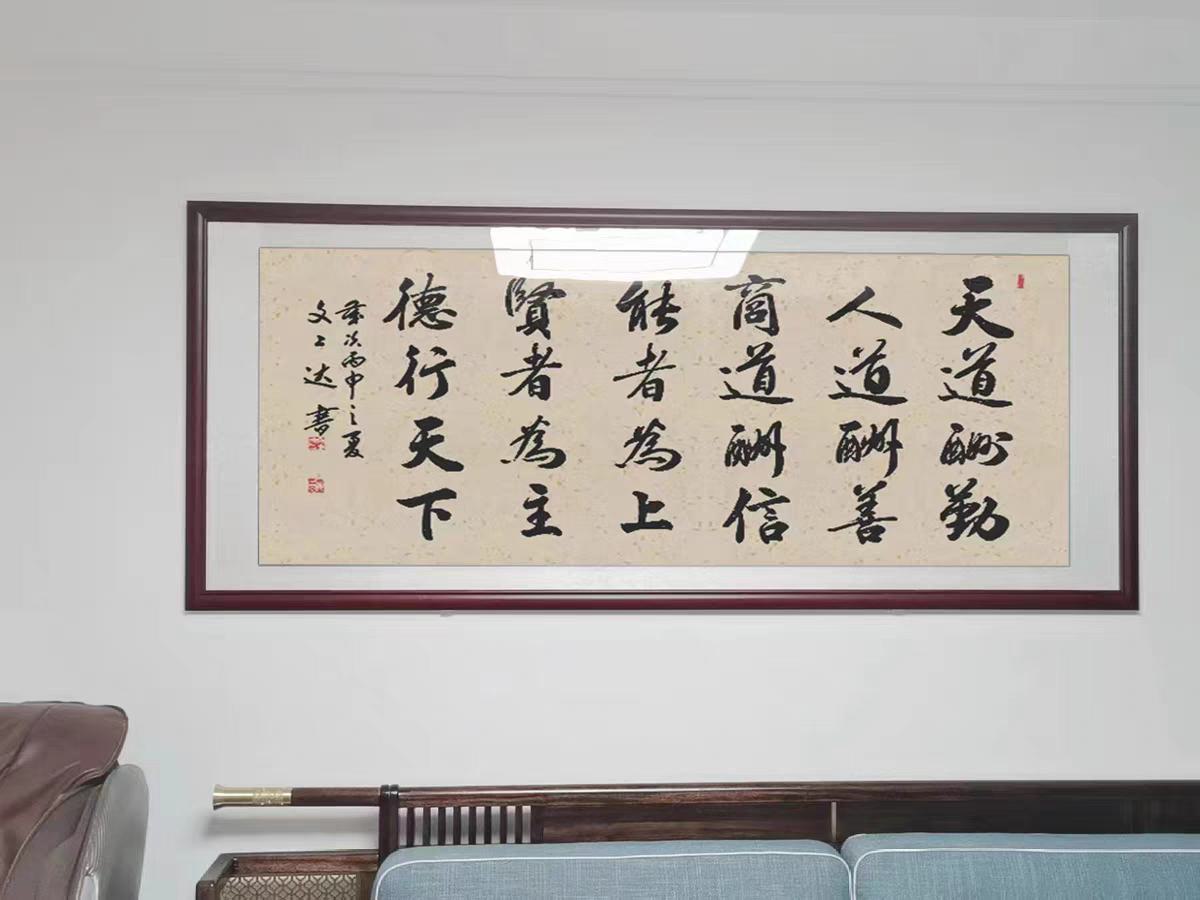 天道酬勤
人道酬善
商道酬信
能者為上
賢者為主
德行天下
歲次丙申之夏
文之达書